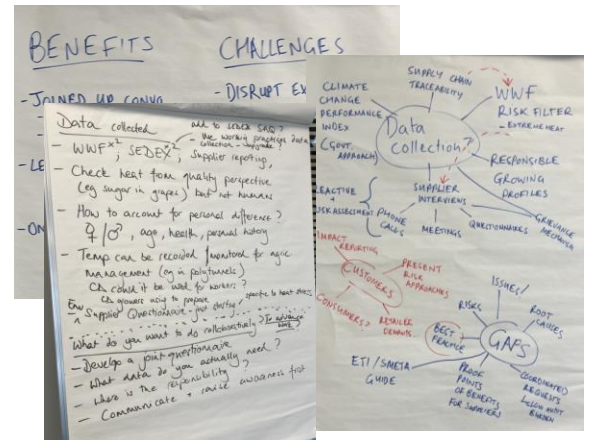 BENEFITS
CHALLENGES
- JOINED UP CONVO
- DISRUPT EX
- LE
- ON
Data collected
add to SEDEX SAQ?
- WWF x2, SEDEX x2
Supplier reporting,
- Check heat from quality perspective
(eg sugar in grapes) but not humans
- How to account for personal difference?
♀/♂, age, health, personal history
- Temp can be recorded / monitored for agric
management (eg in polytunnels)
could it be used for workers?
Supplier Questionnaire - just started
specific to heat stress
What do you want to do collaboratively?
- Develop a joint questionnaire
- What data do you actually need?
- Where is the responsibility?
- Communicate + raise awareness first
CLIMATE
CHANGE
PERFORMANCE
INDEX
(GOVT. APPROACH)
SUPPLY CHAIN
TRACEABILITY
WWF
RISK FILTER
- EXTREME HEAT
Data
collection?
RESPONSIBLE
GROWING
PROFILES
SUPPLIER
INTERVIEWS
REACTIVE
+
RISK ASSESSMENT
PHONE
CALLS
MEETINGS
QUESTIONNAIRES
GRIEVANCE
MECHANISM
IMPACT
REPORTING
CUSTOMERS
PRESENT
RISK
APPROACHES
CONSUMERS?
RETAILER
DEMANDS
ISSUES/
RISKS
ROOT
CAUSES
BEST
PRACTICE
GAPS
ETI / SMETA
GUIDE
PROOF
POINTS
OF BENEFITS
FOR SUPPLIERS
COORDINATED
REQUESTS
AUDIT
BURDEN